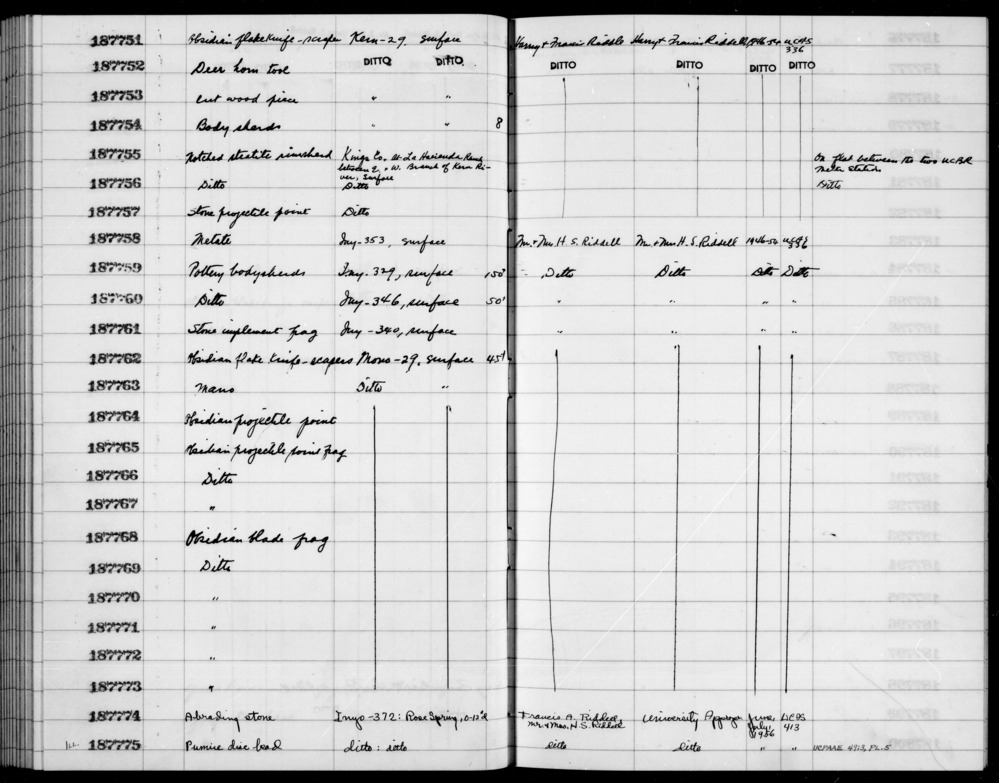 187751 Obsidian flake knife-scraper Kern-29, surface Harry & Francis Riddle Harry & Francis Riddell 1946-54 UCAS 336
187752 Deer horn tool DITTO DITTO DITTO DITTO DITTO DITTO
187753 Cut wood piece " "
187754 Body sherds " " 8
187755 Notched steatite rimsherd Kings Co. at La Hacienda Ranch between E. & W. Branch of Kern River, surface On flat between the two UCBR meter stations
187756 Ditto Ditto Ditto
187757 Stone projectile point Ditto
187758 Metate Iny-353, surface Mr. & Mrs H. S. Riddell Mr. & Mrs H. S. Riddell 1946-54 UCAS 336
187759 Pottery bodysherds Iny-329, surface 150' Ditto Ditto Ditto Ditto
187760 Ditto Iny-346, surface 50' " " " "
187761 Stone implement frag Iny-340, surface " " " "
187762 Obsidian flake knife-scapers Mono-29, surface 45'
187763 Mano Ditto "
187764 Obsidian projectile point
187765 Obsidian projectile point frag
187766 Ditto
187767 "
187768 Obsidian blade frag
187769 Ditto
187770 "
187771 "
187772 "
187773 "
187774 Abrading stone Inyo-372: Rose Spring, 0-12"d Francis A. Riddell Mr. & Mrs. H. S. Riddell University Appropr June, July, 1956 UCAS 413
187775 Pumice disc bead ditto : ditto ditto ditto " " UCPAAE 49:3, PL. 5